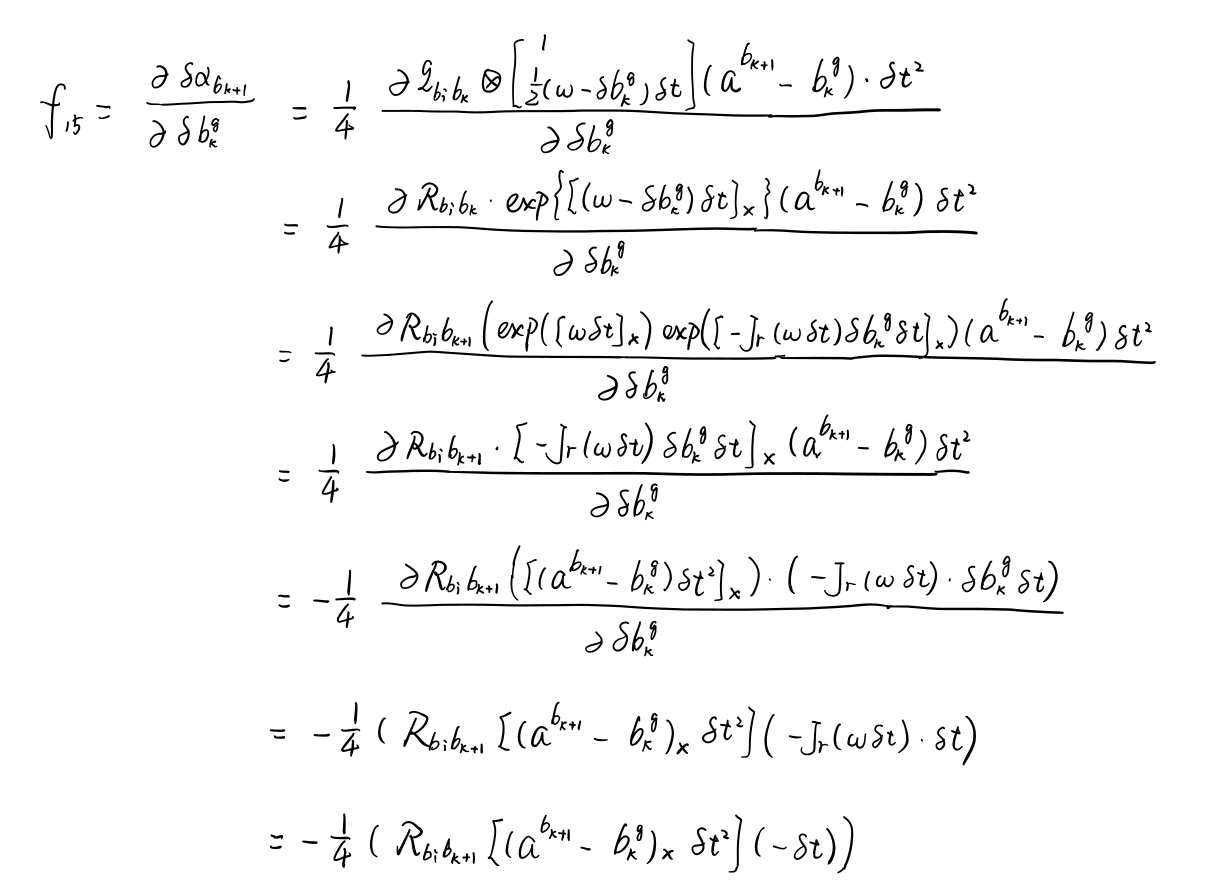 f₁₅ = ∂δα_{b_{k+1}} / ∂δb_k^g = 1/4 ∂q_{b_i b_k} ⊗ [1; 1/2(ω − δb_k^g)δt](a^{b_{k+1}} − b_k^g)·δt² / ∂δb_k^g
= 1/4 ∂R_{b_i b_k} · exp{[(ω − δb_k^g)δt]_×}(a^{b_{k+1}} − b_k^g) δt² / ∂δb_k^g
= 1/4 ∂R_{b_i b_{k+1}} (exp([ωδt]_×) exp([−J_r(ωδt)δb_k^g δt]_×)(a^{b_{k+1}} − b_k^g) δt² / ∂δb_k^g
= 1/4 ∂R_{b_i b_{k+1}} · [−J_r(ωδt) δb_k^g δt]_× (a^{b_{k+1}} − b_k^g) δt² / ∂δb_k^g
= −1/4 ∂R_{b_i b_{k+1}} ([(a^{b_{k+1}} − b_k^g)δt²]_×)·(−J_r(ωδt)·δb_k^g δt) / ∂δb_k^g
= −1/4 (R_{b_i b_{k+1}} [(a^{b_{k+1}} − b_k^g)_× δt²](−J_r(ωδt)·δt)
= −1/4 (R_{b_i b_{k+1}} [(a^{b_{k+1}} − b_k^g)_× δt²](−δt))